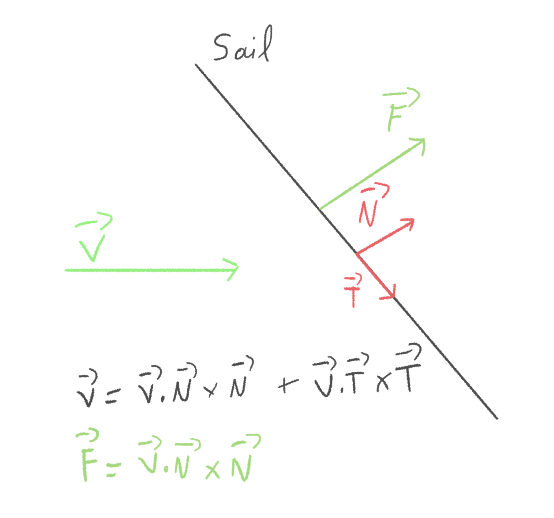 Sail
F⃗
N⃗
V⃗
T⃗
V⃗ = V⃗.N⃗ × N⃗ + V⃗.T⃗ × T⃗
F⃗ = V⃗.N⃗ × N⃗